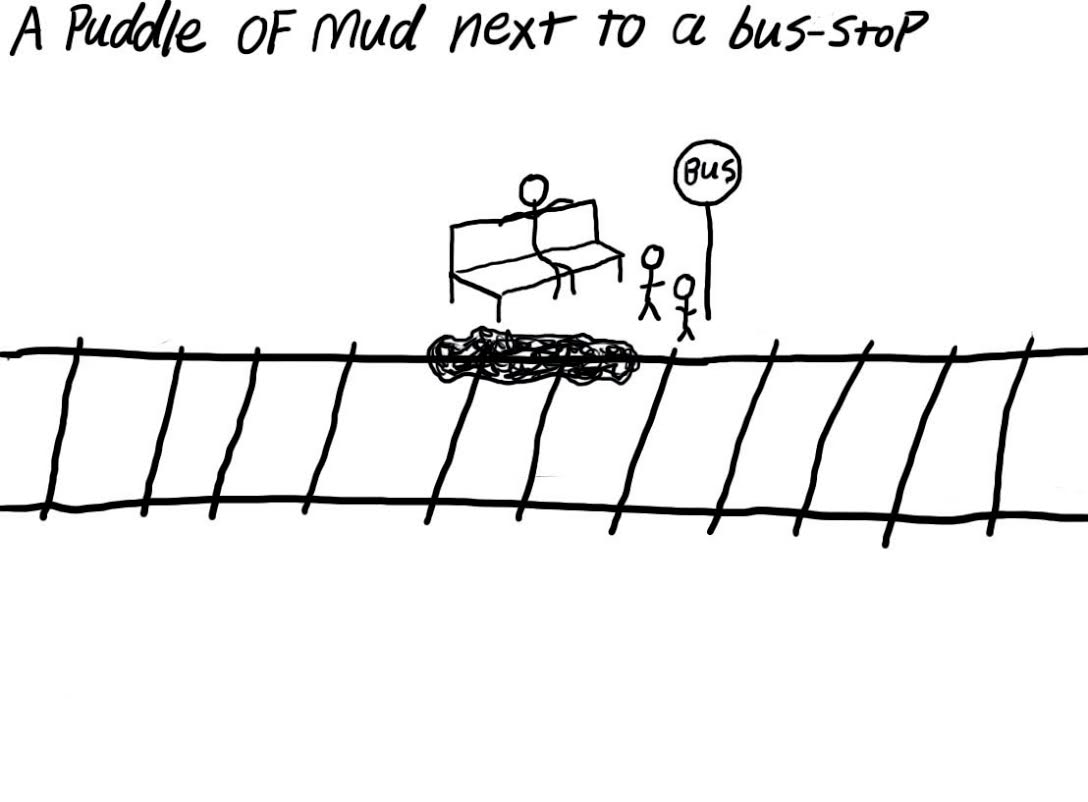 A Puddle OF Mud next to a bus-stop
BUS